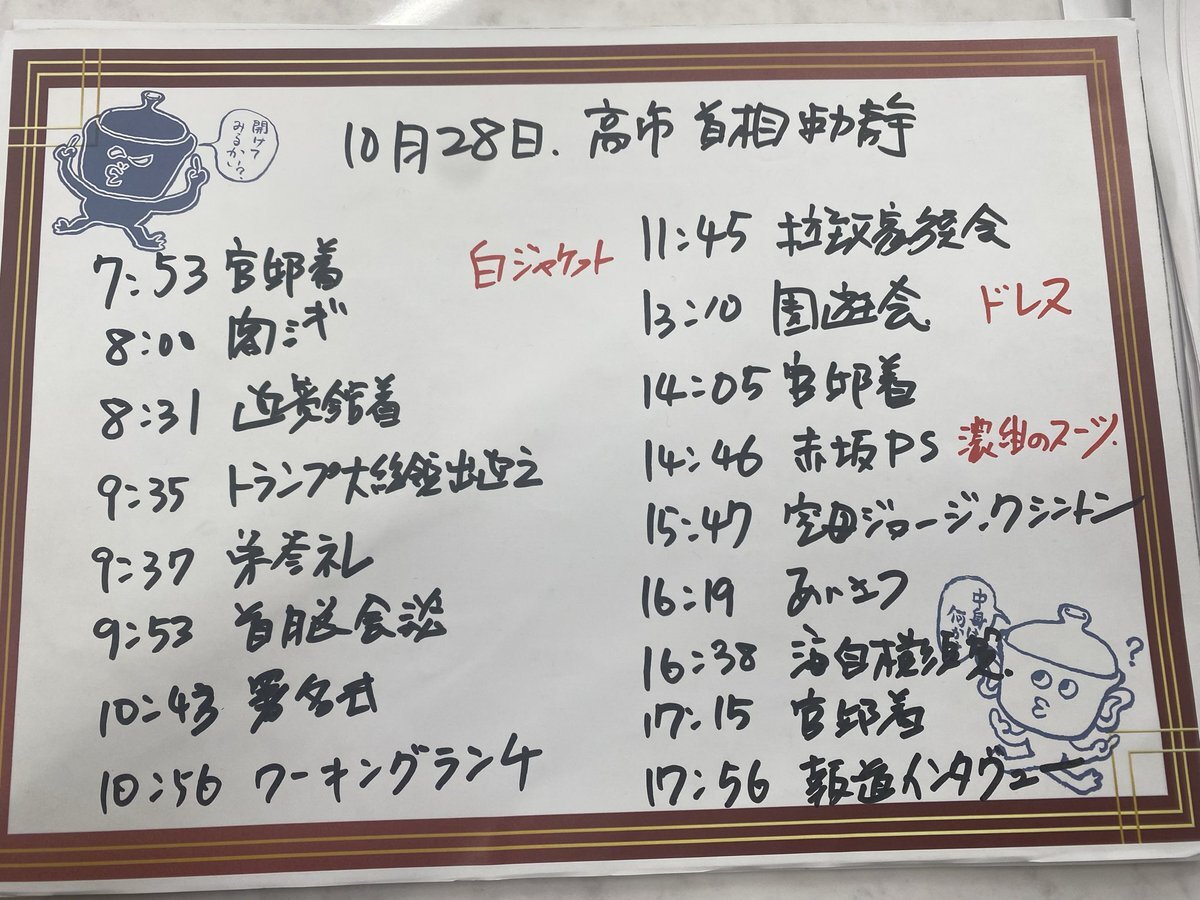 10月28日. 高市首相動静
開けて
みるかい?
7:53 官邸着
白ジャケット
8:00
8:31 迎賓館着
9:35 トランプ大統領出迎え
9:37 栄誉礼
9:53 首脳会談
10:43 署名式
10:56 ワーキングランチ
11:45 拉致家族会
13:10 園遊会.
ドレス
14:05 官邸着
14:46 赤坂PS
濃紺のスーツ.
15:47 空母ジョージ.ワシントン
16:19 あいさつ
16:38 海自横須賀.
17:15 官邸着
17:56 報道インタヴュー
中身は
何か
?